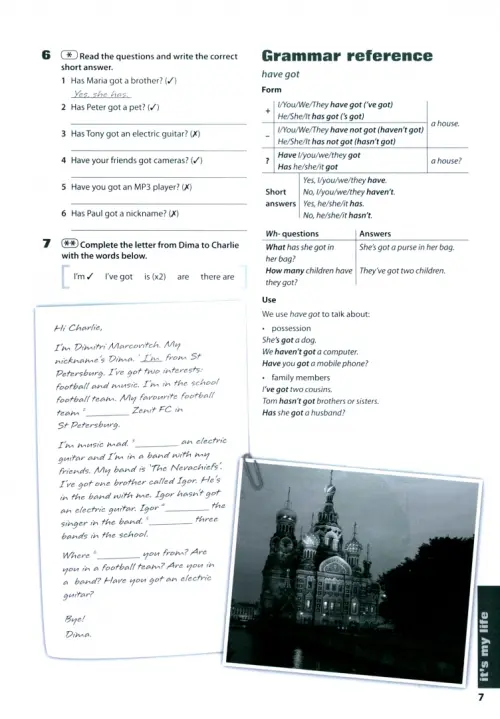 6 * Read the questions and write the correct
short answer.
1 Has Maria got a brother? (✓)
Yes, she has.
2 Has Peter got a pet? (✓)
3 Has Tony got an electric guitar? (✗)
4 Have your friends got cameras? (✓)
5 Have you got an MP3 player? (✗)
6 Has Paul got a nickname? (✗)
7 ** Complete the letter from Dima to Charlie
with the words below.
I'm ✓ I've got is (x2) are there are
Hi Charlie,
I'm Dimitri Marcovitch. My
nickname's Dima. ¹ I'm from St
Petersburg. I've got two interests:
football and music. I'm in the school
football team. My favourite football
team ² ________ Zenit FC in
St Petersburg.
I'm music mad. ³ ________ an electric
guitar and I'm in a band with my
friends. My band is 'The Nevachiefs'.
I've got one brother called Igor. He's
in the band with me. Igor hasn't got
an electric guitar. Igor ⁴ ________ the
singer in the band. ⁵ ________ three
bands in the school.
Where ⁶ ________ you from? Are
you in a football team? Are you in
a band? Have you got an electric
guitar?
Bye!
Dima.
Grammar reference
have got
Form
+ I/You/We/They have got ('ve got)
He/She/It has got ('s got)
a house.
– I/You/We/They have not got (haven't got)
He/She/It has not got (hasn't got)
? Have I/you/we/they got
Has he/she/it got
a house?
Short answers
Yes, I/you/we/they have.
No, I/you/we/they haven't.
Yes, he/she/it has.
No, he/she/it hasn't.
Wh- questions Answers
What has she got in She's got a purse in her bag.
her bag?
How many children have They've got two children.
they got?
Use
We use have got to talk about:
• possession
She's got a dog.
We haven't got a computer.
Have you got a mobile phone?
• family members
I've got two cousins.
Tom hasn't got brothers or sisters.
Has she got a husband?
it's my life
7